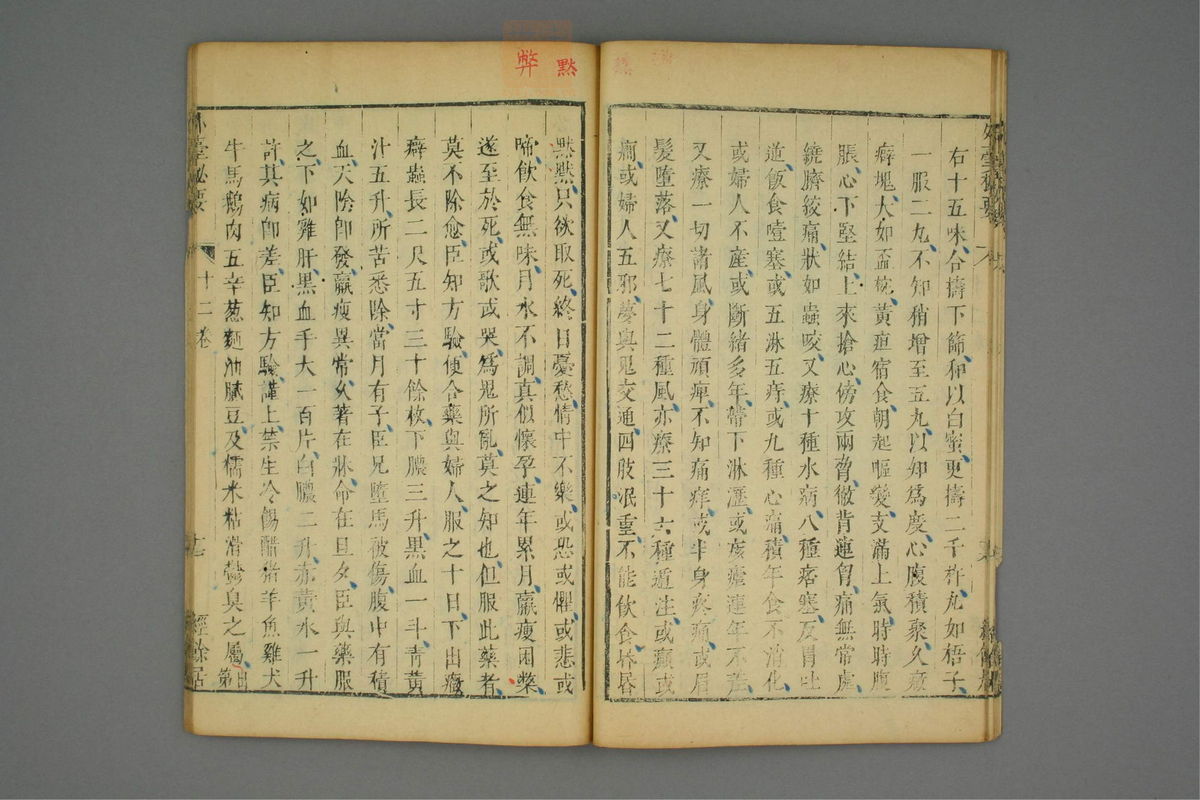 右十五味合擣下篩和以白蜜更擣二千杵丸如梧子
一服二丸不知稍增至五丸以知爲度心腹積聚久癥
癖塊大如盃椀黃疸宿食朝起嘔變支滿上氣時時腹
脹心下堅結上來搶心傍攻兩脅徹背連胷痛無常處
繞臍絞痛狀如蟲咬又療十種水病八種痞塞反胃吐
逆飯食噎塞或五淋五痔或九種心痛積年食不消化
或婦人不產或斷緒多年帶下淋瀝或痎瘧連年不差
又療一切諸風身體頑痺不知痛痒或半身疼痛或眉
髮墮落又療七十二種風亦療三十六種遁注或癲或
癇或婦人五邪夢與鬼交通四肢沉重不能飲食昏昏
默默只欲取死終日憂愁情中不樂或恐或懼或悲或
啼飲食無味月水不調真似懷孕連年累月羸瘦困弊
遂至於死或歌或哭爲鬼所亂莫之知也但服此藥者
莫不除愈臣知方驗便合藥與婦人服之十日下出癥
癖蟲長二尺五寸三十餘枚下膿三升黑血一斗青黃
汁五升所苦悉除當月有子臣兄墮馬被傷腹中有積
血天陰即發羸瘦異常久著在牀命在旦夕臣與藥服
之下如雞肝黑血手大一百片白膿二升赤黃水一升
許其病即差臣知方驗謹上禁生冷餳醋猪羊魚雞犬
牛馬鵝肉五辛葱麵油膩豆及糯米粘滑鬱臭之屬出第
十二卷
外臺秘要
十二卷
經餘居
默
弊